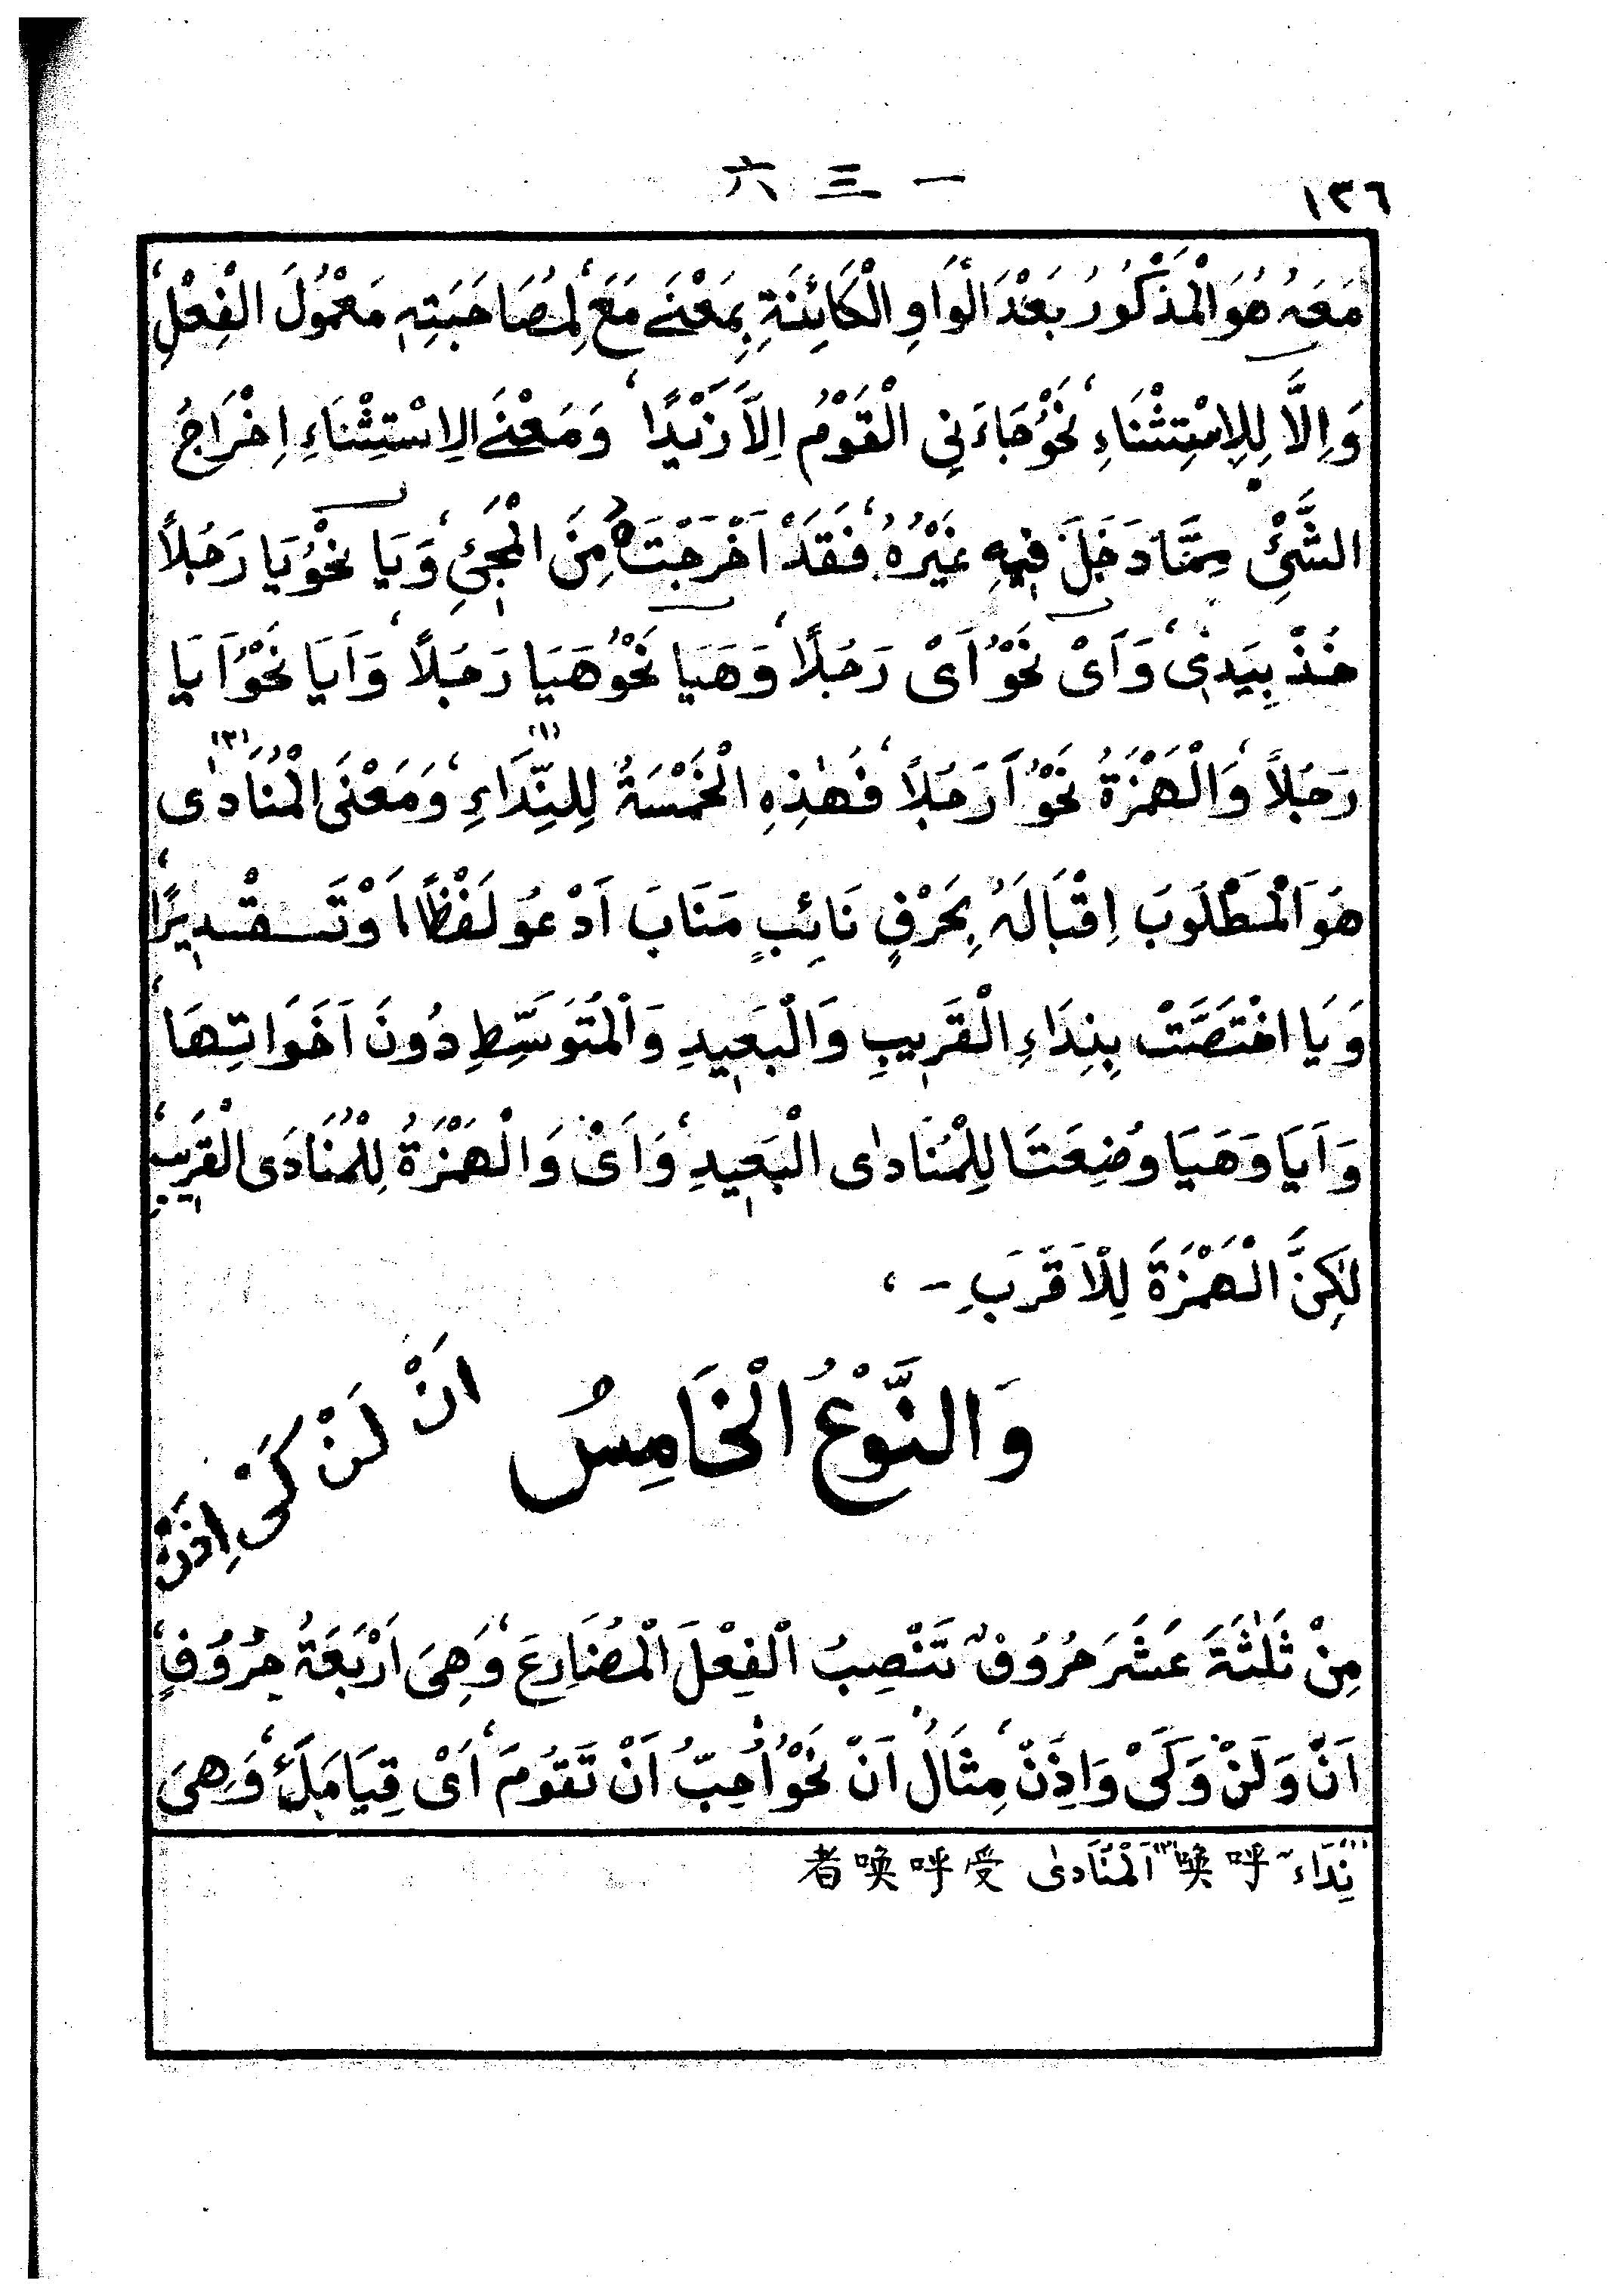 ١٣٦
一三六
مَعَهُ هُوَ الْمَذْكُورُ بَعْدَ الْوَاوِ الْكَائِنَةِ بِمَعْنَى مَعَ، لِمُصَاحَبَتِهِ مَعْمُولَ الْفِعْلِ،
وَاِلَّا لِلْاِسْتِثْنَاءِ، نَحْوُ جَاءَنِى الْقَوْمُ اِلَّا زَيْدًا، وَمَعْنَى الِاسْتِثْنَاءِ اِخْرَاجُ
الشَّيْئِ مِمَّا دَخَلَ فِيهِ غَيْرُهُ، فَقَدْ اَخْرَجْتَهُ مِنَ الْمَجِىْئِ، وَيَا نَحْوُ يَا رَجُلاً
خُذْ بِيَدِى، وَاَىْ نَحْوُ اَىْ رَجُلاً، وَهَيَا نَحْوُ هَيَا رَجُلاً، وَاَيَا نَحْوُ اَيَا
رَجُلاً، وَالْهَمْزَةُ نَحْوُ اَ رَجُلاً، فَهٰذِهِ الْخَمْسَةُ لِلنِّدَاءِ(١)، وَمَعْنَى الْمُنَادٰى(٢)
هُوَ الْمَطْلُوبَ اِقْبَالَهُ بِحَرْفٍ نَائِبٍ مَنَابَ اَدْعُو لَفْظًا اَوْ تَقْدِيرًا،
وَيَا اخْتَصَّتْ بِنِدَاءِ الْقَرِيبِ وَالْبَعِيدِ وَالْمُتَوَسِّطِ دُونَ اَخَوَاتِهَا،
وَاَيَا وَهَيَا وُضِعَتَا لِلْمُنَادٰى الْبَعِيدِ، وَاَىْ وَالْهَمْزَةُ لِلْمُنَادَى الْقَرِيبِ،
لٰكِنَّ الْهَمْزَةَ لِلْاَقْرَبِ -،
وَالنَّوْعُ الْخَامِسُ اَنْ لَنْ كَىْ اِذَنْ
مِنْ ثَلٰثَةَ عَشَرَ حُرُوفٌ تَنْصِبُ الْفِعْلَ الْمُضَارِعَ، وَهِىَ اَرْبَعَةُ حُرُوفٍ،
اَنْ وَلَنْ وَكَىْ وَاِذَنْ، مِثَالُ اَنْ نَحْوُ اُحِبُّ اَنْ تَقُومَ، اَىْ قِيَامَكَ، وَهِىَ
(١) نِدَاء~ 呼喚 (٢) اَلْمُنَادٰى 受呼喚者